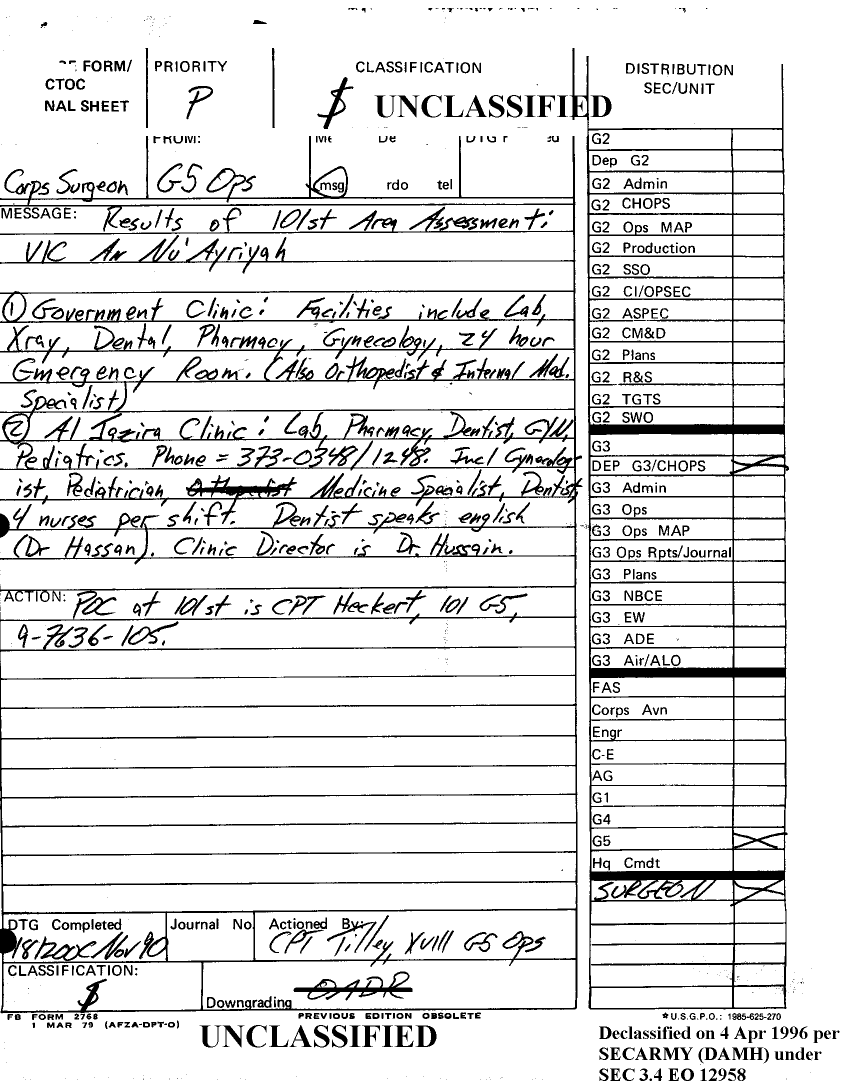 FORM/ PRIORITY CLASSIFICATION DISTRIBUTION
CTOC SEC/UNIT
NAL SHEET P $ UNCLASSIFIED
FROM:
Corps Surgeon G5 Ops msg rdo tel
MESSAGE: Results of 101st Area Assessment:
VIC An Nu'Ayriyah
① Government Clinic: Facilities include Lab,
Xray, Dental, Pharmacy, Gynecology, 24 hour
Emergency Room. (Also Orthopedist & Internal Med.
Specialist)
② Al Jazira Clinic: Lab, Pharmacy, Dentist, GYN,
Pediatrics. Phone = 373-0348/1248. Incl Gynecolog-
ist, Pediatrician, Orthopedist Medicine Specialist, Dentist,
4 nurses per shift. Dentist speaks english
(Dr Hassan). Clinic Director is Dr. Hussain.
ACTION: POC at 101st is CPT Heckert, 101 G5,
9-7636-105.
DTG Completed Journal No. Actioned By:
181200C Nov 90 CPT Tilley, XVIII G5 Ops
CLASSIFICATION:
$ Downgrading OADR
FB FORM 2768 PREVIOUS EDITION OBSOLETE
1 MAR 79 (AFZA-DPT-O)
UNCLASSIFIED
G2
Dep G2
G2 Admin
G2 CHOPS
G2 Ops MAP
G2 Production
G2 SSO
G2 CI/OPSEC
G2 ASPEC
G2 CM&D
G2 Plans
G2 R&S
G2 TGTS
G2 SWO
G3
DEP G3/CHOPS X
G3 Admin
G3 Ops
G3 Ops MAP
G3 Ops Rpts/Journal
G3 Plans
G3 NBCE
G3 EW
G3 ADE
G3 Air/ALO
FAS
Corps Avn
Engr
C-E
AG
G1
G4
G5 X
Hq Cmdt
SURGEON X
★U.S.G.P.O.: 1985-625-270
Declassified on 4 Apr 1996 per
SECARMY (DAMH) under
SEC 3.4 EO 12958